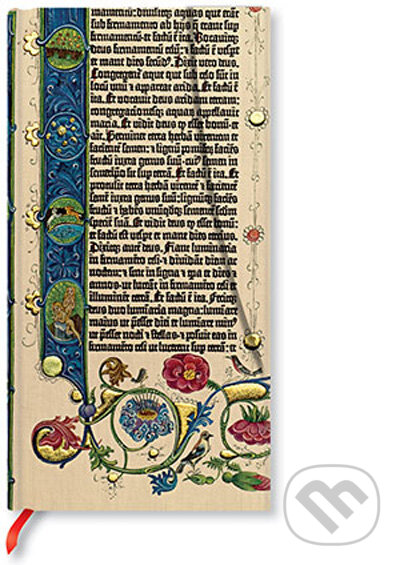 sub firmamento ab hijs q̃ erant sup
firmamentũ: et factũ ẽ ita. Vocavitq;
deus firmamentũ celũ: ⁊ factũ ẽ vespe
et mane dies secũd9. Dixit vero deus.
Congregent̃ aque que sub celo sũt in
locũ unũ ⁊ appareat arida. Et factũ ẽ
ita. Et vocavit deus aridam terram:
congregacionesq; aquarum appellavit
maria. Et vidit deus qp esset bonũ· et
ait. Germinet terra herbã virentẽ et
facientẽ semẽ: ⁊ lignũ pomifeȝ faciẽs
fructũ iuxta genus suũ· cui9 semen in
semetip̃o sit sup terrã. Et factũ ẽ ita. Et
protulit terra herbã virentẽ ⁊ facientẽ
semẽ iuxta genus suũ: lignũq;
fructũ ⁊ habẽs unũqdq; sementẽ scdm
speciẽ suã. Et vidit deus qp esset bonũ:
et factũ est vespe et mane dies tercius.
Dixitq; aut̃ deus. Fiant luminaria
in firmamẽto celi· ⁊ dividãt diem ac
noctem: ⁊ sint in signa ⁊ tpa et dies ⁊
annos· ut luceãt in firmamẽto celi et
illuminẽt terrã. Et factũ ẽ ita. Fecitq;
deus duo luminaria magna: luminare
maius ut p̃esset diei et luminare min9
ut p̃esset nocti ⁊ stellas· ⁊ posuit eas in
firmamẽto celi ut lucerent sup terrã: et